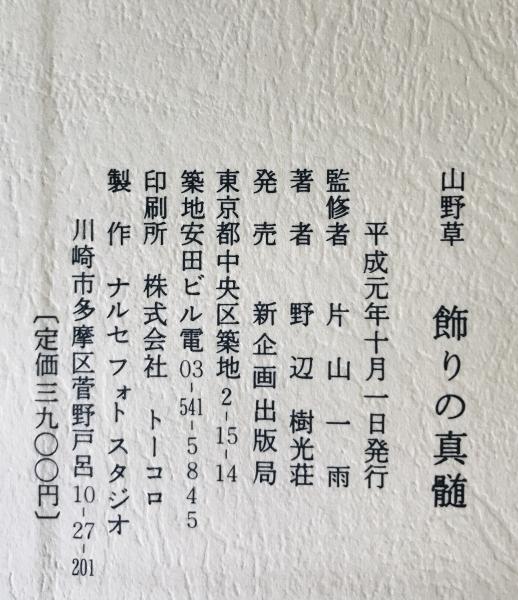 山野草　飾りの真髄
平成元年十月一日発行
監修者　片山一雨
著者　野辺樹光荘
発売　新企画出版局
東京都中央区築地2-15-14
築地安田ビル電03-541-5845
印刷所　株式会社　トーコロ
製作　ナルセフォトスタジオ
川崎市多摩区菅野戸呂10-27-201
〔定価三九〇〇円〕